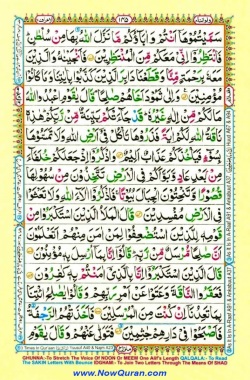 سَمَّيْتُمُوْهَاۤ اَنْتُمْ وَ اٰبَآؤُكُمْ مَّا نَزَّلَ اللّٰهُ بِهَا مِنْ سُلْطٰنٍ
فَانْتَظِرُوْۤا اِنِّيْ مَعَكُمْ مِّنَ الْمُنْتَظِرِيْنَ فَاَنْجَيْنٰهُ وَالَّذِيْنَ
مَعَهٗ بِرَحْمَةٍ مِّنَّا وَقَطَعْنَا دَابِرَ الَّذِيْنَ كَذَّبُوْا بِاٰيٰتِنَا وَمَا كَانُوْا
مُؤْمِنِيْنَ وَاِلٰى ثَمُوْدَ اَخَاهُمْ صٰلِحًا قَالَ يٰقَوْمِ اعْبُدُوا اللّٰهَ
مَا لَكُمْ مِّنْ اِلٰهٍ غَيْرُهٗ قَدْ جَآءَتْكُمْ بَيِّنَةٌ مِّنْ رَّبِّكُمْ هٰذِهٖ
نَاقَةُ اللّٰهِ لَكُمْ اٰيَةً فَذَرُوْهَا تَاْكُلْ فِيْۤ اَرْضِ اللّٰهِ وَلَا تَمَسُّوْهَا
بِسُوْٓءٍ فَيَاْخُذَكُمْ عَذَابٌ اَلِيْمٌ وَاذْكُرُوْۤا اِذْ جَعَلَكُمْ خُلَفَآءَ
مِنْۢ بَعْدِ عَادٍ وَّبَوَّاَكُمْ فِي الْاَرْضِ تَتَّخِذُوْنَ مِنْ سُهُوْلِهَا
قُصُوْرًا وَّتَنْحِتُوْنَ الْجِبَالَ بُيُوْتًا فَاذْكُرُوْۤا اٰلَآءَ اللّٰهِ وَلَا تَعْثَوْا
فِي الْاَرْضِ مُفْسِدِيْنَ قَالَ الْمَلَاُ الَّذِيْنَ اسْتَكْبَرُوْا مِنْ
قَوْمِهٖ لِلَّذِيْنَ اسْتُضْعِفُوْا لِمَنْ اٰمَنَ مِنْهُمْ اَتَعْلَمُوْنَ
اَنَّ صٰلِحًا مُّرْسَلٌ مِّنْ رَّبِّهٖ قَالُوْۤا اِنَّا بِمَاۤ اُرْسِلَ بِهٖ مُؤْمِنُوْنَ
قَالَ الَّذِيْنَ اسْتَكْبَرُوْۤا اِنَّا بِالَّذِيْۤ اٰمَنْتُمْ بِهٖ كٰفِرُوْنَ
فَعَقَرُوا النَّاقَةَ وَعَتَوْا عَنْ اَمْرِ رَبِّهِمْ وَقَالُوْا يٰصٰلِحُ ائْتِنَا
بِمَا تَعِدُنَاۤ اِنْ كُنْتَ مِنَ الْمُرْسَلِيْنَ فَاَخَذَتْهُمُ
الرَّجْفَةُ فَاَصْبَحُوْا فِيْ دَارِهِمْ جٰثِمِيْنَ فَتَوَلّٰى عَنْهُمْ وَقَالَ يٰقَوْمِ
GHUNNA:-To Stretch The Voice Of NOON Or MEEM One Alif's Length QALQALA:- To Read
The SAKIN Letters With Bounce IDGHAM:- To Join Two Letters Through The Means Of SHAD
www.NowQuran.com